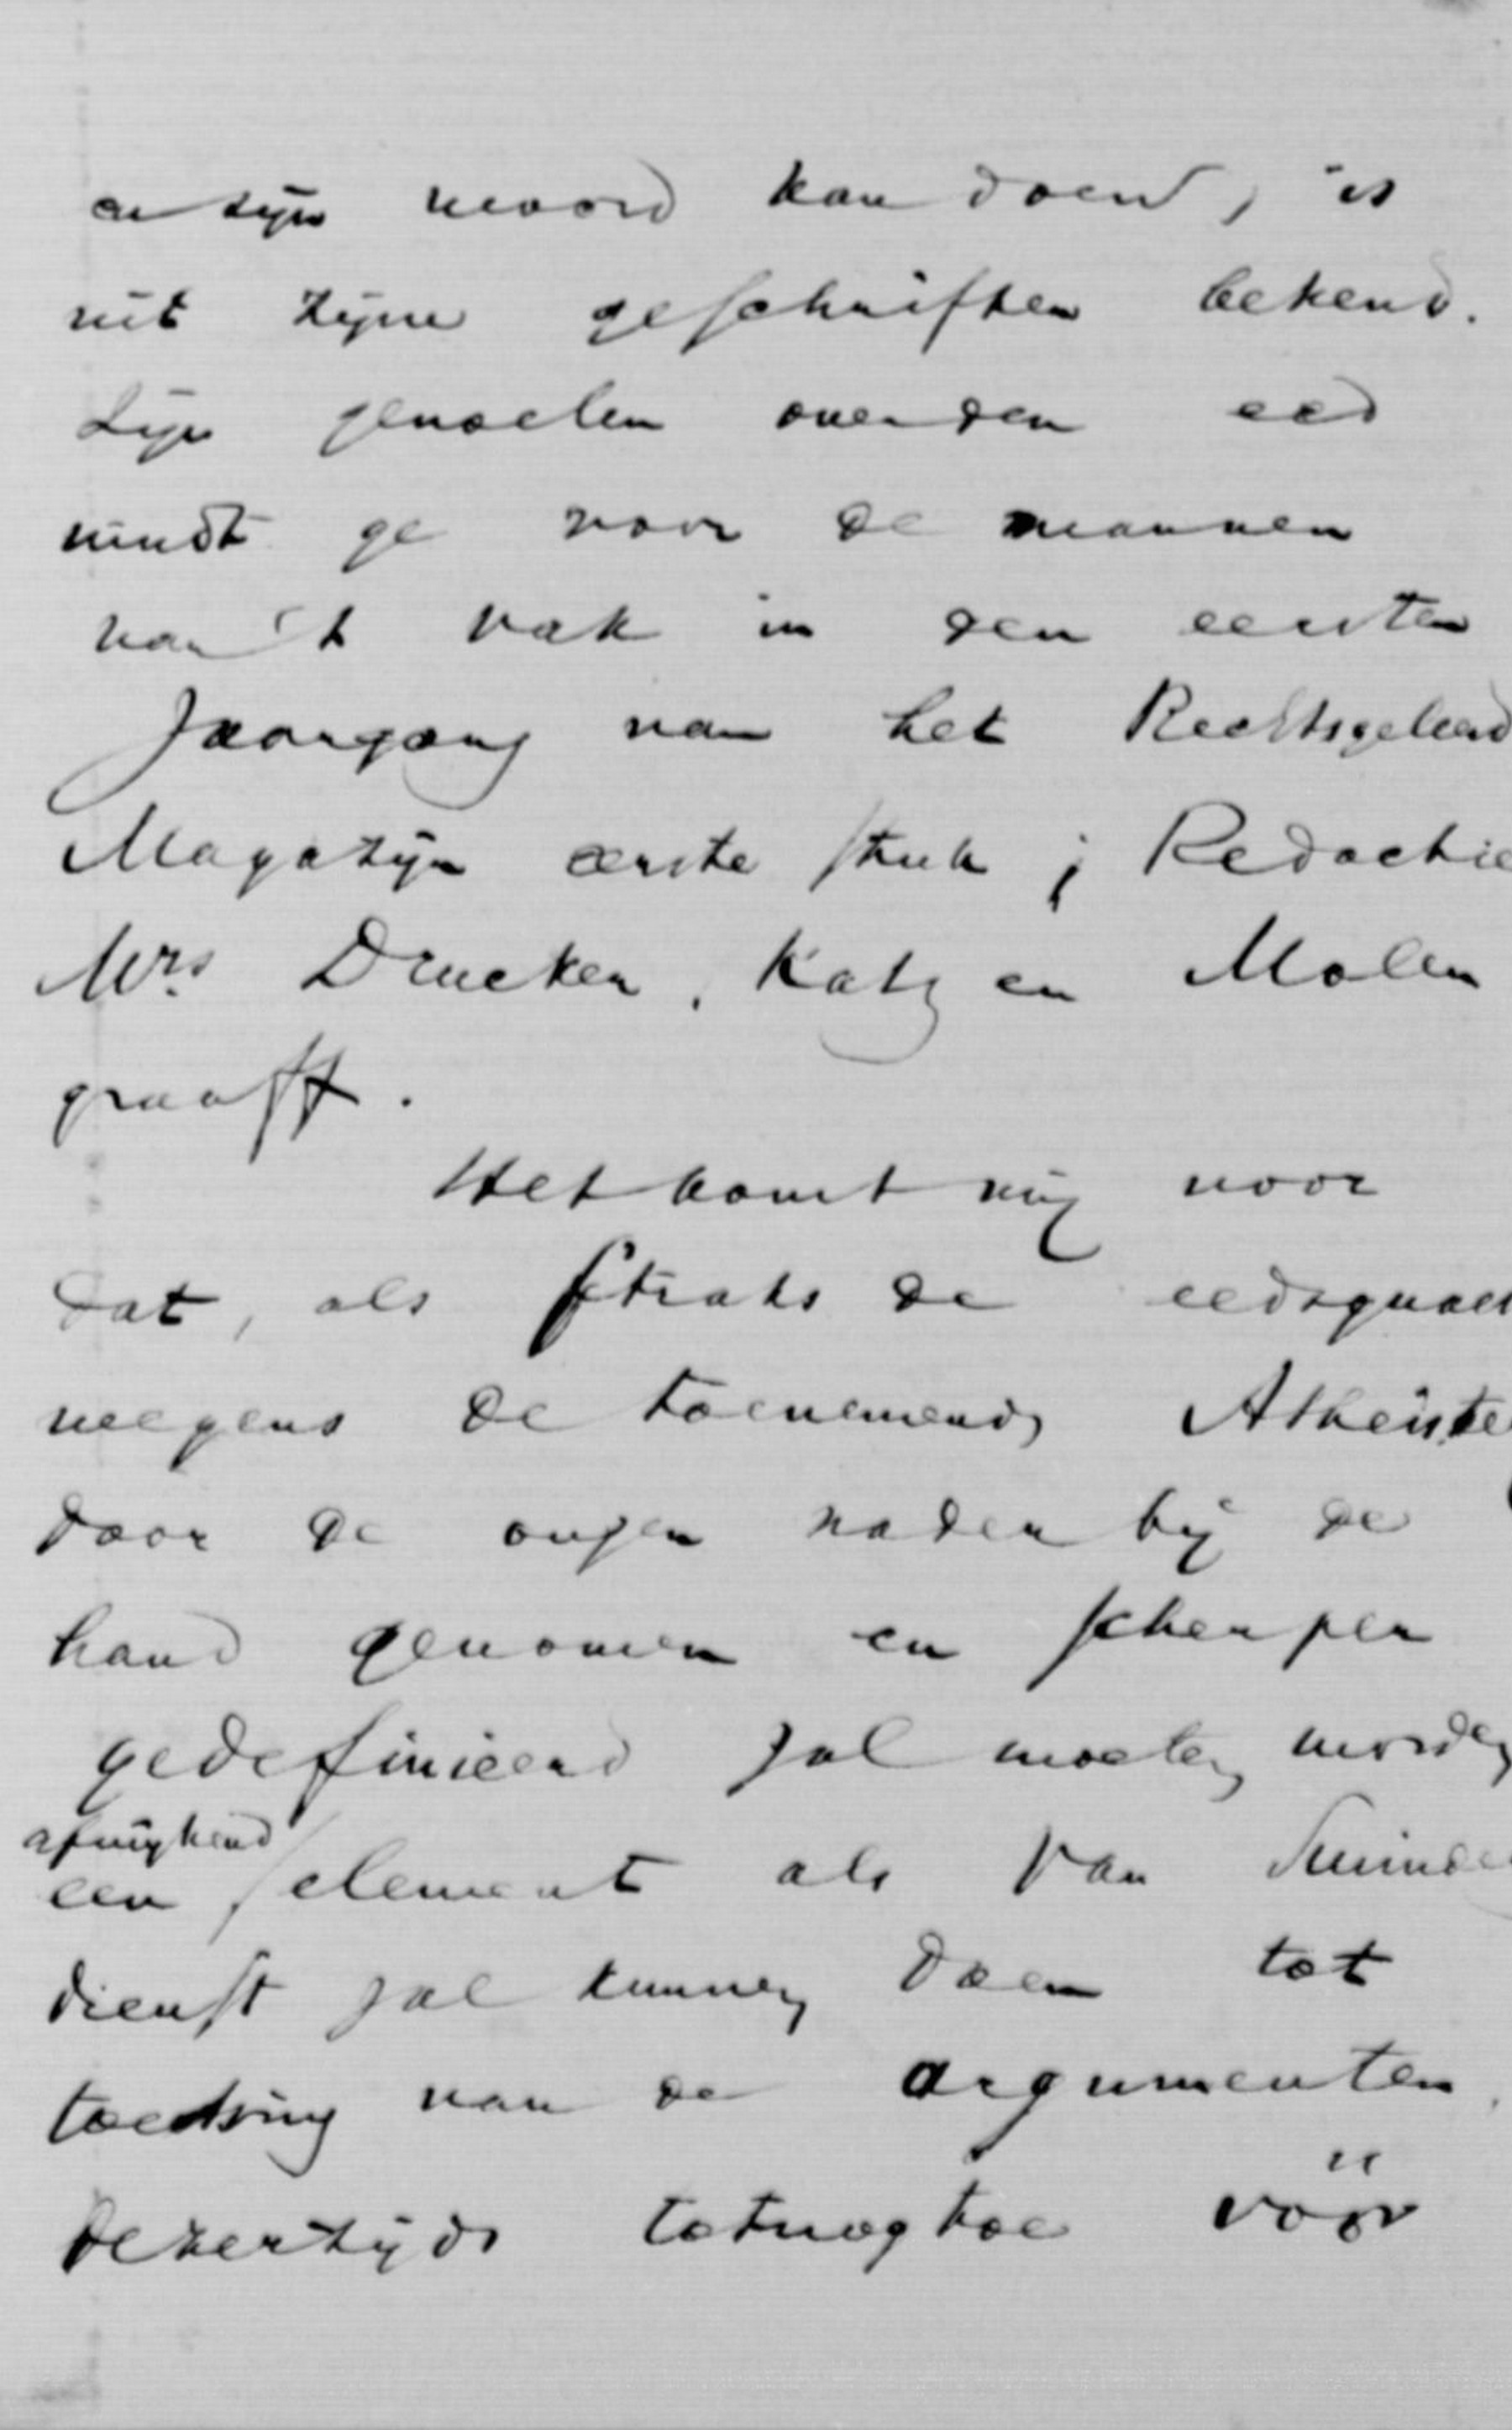 en zijn woord kan doen, is
uit zijne geschriften bekend.
Zijn gevoelen over den eed
vindt ge voor de mannen
van 't vak in den eersten
Jaargang van het Rechtsgeleerd
Magazijn eerste stuk; Redactie
Mrs. Drucker, Katz en Molen
graaff.
Het komt mij voor
dat, als straks de eedsquaest
wegens de toenemende Atheiste
door de onzen nader bij de
hand genomen en scherper
gedefinieerd zal moeten worden
afwijkend
een element als Van Swinde
dienst zal kunnen doen tot
toetsing van de argumenten,
dezerzijds totnogtoe vóór